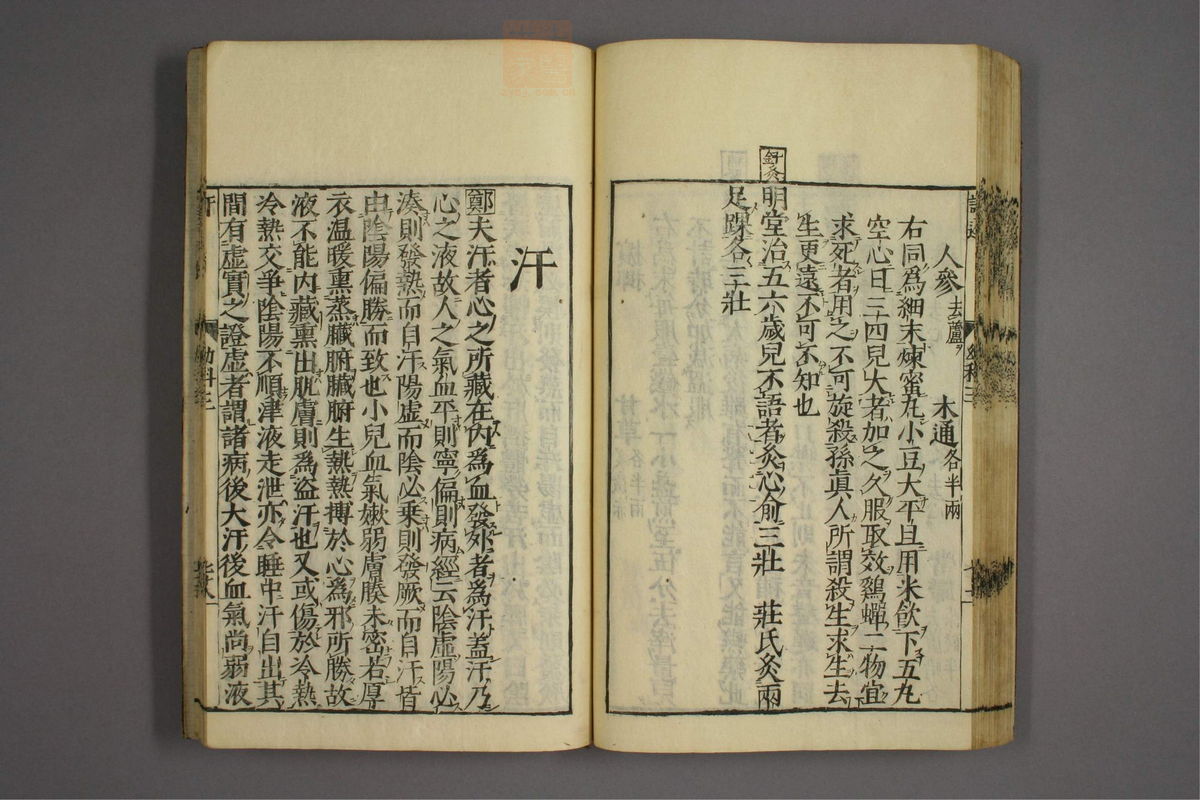 人參去蘆 木通各半兩
右同為細末煉蜜丸小豆大平旦用米飲下五丸
空心日三四兒大者加之久服取效鷄蟬二物宜
求死者用之不可旋殺孫眞人所謂殺生求生去
生更遠不可不知也
針灸
明堂治五六歲兒不語者灸心俞三壯 莊氏灸兩
足踝各三壯
汗
鄭夫汗者心之所藏在內為血發外者為汗蓋汗乃
心之液故人之氣血平則寧偏則病經云陰虛陽必
湊則發熱而自汗陽虛而陰必乘則發厥而自汗皆
由陰陽偏勝而致也小兒血氣嫩弱膚腠未密若厚
衣温暖熏蒸臟腑臟腑生熱熱搏於心為邪所勝故
液不能內藏熏出肌膚則為盜汗也又或傷於冷熱
冷熱交爭陰陽不順津液走泄亦令睡中汗自出其
間有虛實之證虛者謂諸病後大汗後血氣尚弱液
汗 幼科三